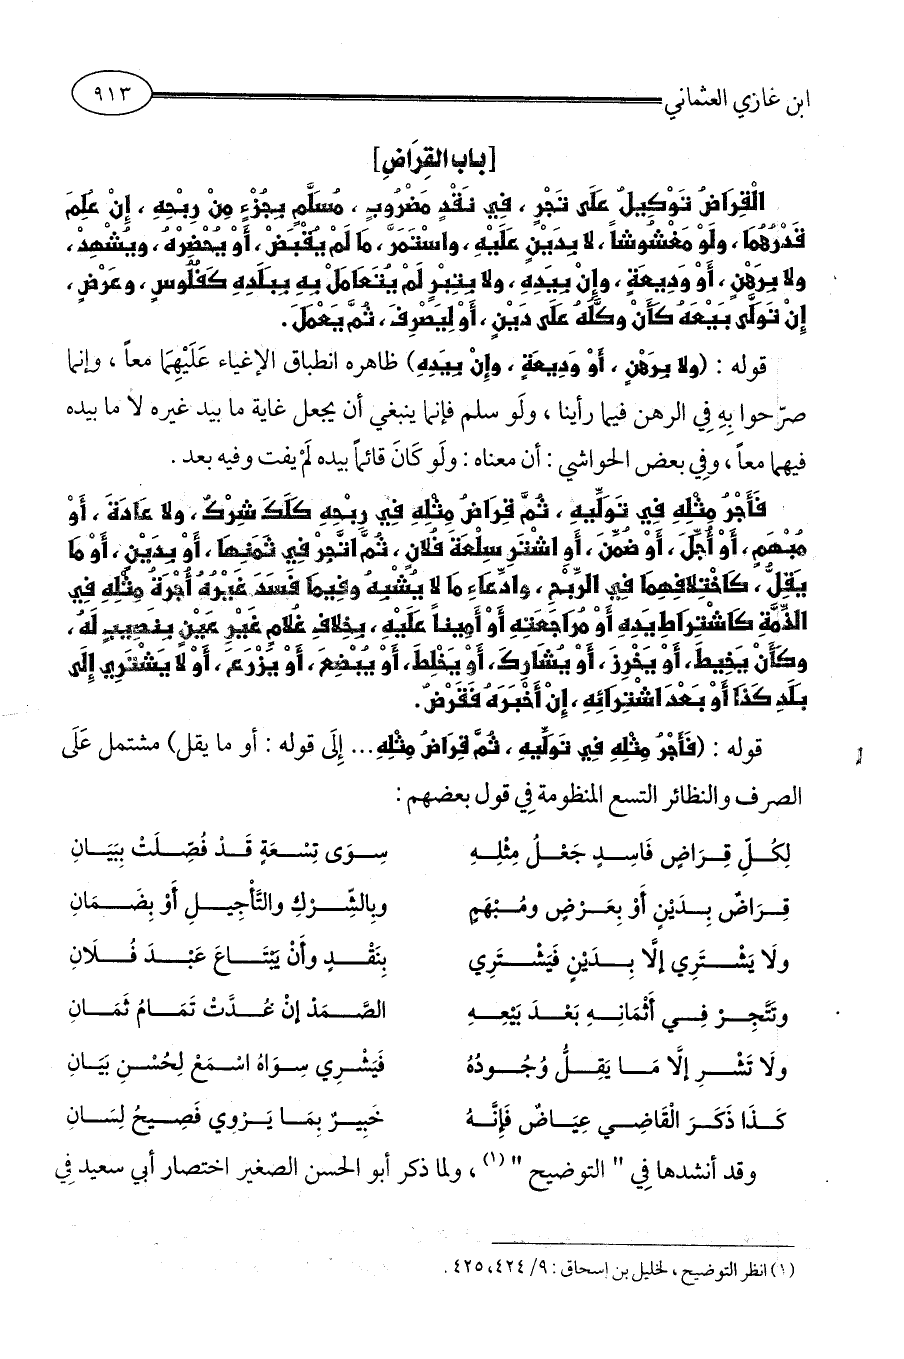 ابن غازي العثماني ٩١٣
[باب القِرَاضِ]
الْقِرَاضُ تَوْكِيلٌ عَلَى تَجْرٍ ، فِي نَقْدٍ مَضْرُوبٍ ، مُسَلَّمٍ بِجُزْءٍ مِنْ رِبْحِهِ ، إِنْ عُلِمَ
قَدْرُهُمَا ، وَلَوْ مَغْشُوشاً ، لا بِدَيْنٍ عَلَيْهِ ، واسْتَمَرَّ ، مَا لَمْ يُقْبَضْ ، أَوْ يُحْضِرْهُ ، ويُشْهِدْ ،
ولا بِرَهْنٍ ، أَوْ وَدِيعَةٍ ، وإِنْ بِيَدِهِ ، ولا بِتِبْرٍ لَمْ يُتَعَامَلْ بِهِ بِبَلَدِهِ كَفُلُوسٍ ، وعَرْضٍ ،
إِنْ تَوَلَّى بَيْعَهُ كَأَنْ وكَّلَهُ عَلَى دَيْنٍ ، أَوْ لِيَصْرِفَ ، ثُمَّ يَعْمَلَ .
قوله : (ولا بِرَهْنٍ ، أَوْ وَدِيعَةٍ ، وإِنْ بِيَدِهِ) ظاهره انطباق الإغياء عَلَيْهِمَا معاً ، وإنما
صرّحوا بِهِ فِي الرهن فيما رأينا ، ولَو سلم فإنما ينبغي أن يجعل غاية ما بيد غيره لا ما بيده
فيهما معاً ، وفِي بعض الحواشي : أن معناه : ولَو كَانَ قائماً بيده لَمْ يفت وفيه بعد .
فَأَجْرُ مِثْلِهِ فِي تَوَلِّيهِ ، ثُمَّ قِرَاضُ مِثْلِهِ فِي رِبْحِهِ كَلَكَ شِرْكٌ ، ولا عَادَةَ ، أَوْ
مُبْهَمٍ ، أَوْ أُجِّلَ ، أَوْ ضُمِّنَ ، أَوِ اشْتَرِ سِلْعَةَ فُلانٍ ، ثُمَّ اتَّجِرْ فِي ثَمَنِهَا ، أَوْ بِدَيْنٍ ، أَوْ مَا
يَقِلُّ ، كَاخْتِلافِهِمَا فِي الرِّبْحِ ، وادِّعَاءِ مَا لا يُشْبِهُ وفِيمَا فَسَدَ غَيْرُهُ أُجْرَةُ مِثْلِهِ فِي
الذِّمَّةِ كَاشْتِرَاطِ يَدِهِ أَوْ مُرَاجَعَتِهِ أَوْ أَمِيناً عَلَيْهِ ، بِخِلافِ غُلامٍ غَيْرِ عَيْنٍ بِنَصِيبٍ لَهُ ،
وكَأَنْ يَخِيطَ ، أَوْ يَخْرِزَ ، أَوْ يُشَارِكَ ، أَوْ يَخْلِطَ ، أَوْ يُبْضِعَ ، أَوْ يَزْرَعَ ، أَوْ لا يَشْتَرِي إِلَى
بَلَدِ كَذَا أَوْ بَعْدَ اشْتِرَائِهِ ، إِنْ أَخْبَرَهُ فَقَرْضٌ .
قوله : (فَأَجْرُ مِثْلِهِ فِي تَوَلِّيهِ ، ثُمَّ قِرَاضُ مِثْلِهِ ... إِلَى قوله : أو ما يقل) مشتمل عَلَى
الصرف والنظائر التسع المنظومة فِي قول بعضهم :
لِكُلِّ قِرَاضٍ فَاسِدٍ جَعْلُ مِثْلِهِ سِوَى تِسْعَةٍ قَدْ فُصِّلَتْ بِبَيَانِ
قِرَاضٌ بِدَيْنٍ أَوْ بِعَرْضٍ ومُبْهَمٍ وبِالشِّرْكِ والتَّأْجِيلِ أَوْ بِضَمَانِ
ولَا يَشْتَرِي إِلَّا بِدَيْنٍ فَيَشْتَرِي بِنَقْدٍ وأَنْ يَبْتَاعَ عَبْدَ فُلَانِ
وتَتَّجِرْ فِي أَثْمَانِهِ بَعْدَ بَيْعِهِ الصَّمَدْ إِنْ عُدَّتْ تَمَامُ ثَمَانِ
ولَا تَشْرِ إِلَّا مَا يَقِلُّ وُجُودُهُ فَيَشْرِي سِوَاهُ اسْمَعْ لِحُسْنِ بَيَانِ
كَذَا ذَكَرَ الْقَاضِي عِيَاضٌ فَإِنَّهُ خَبِيرٌ بِمَا يَرْوِي فَصِيحُ لِسَانِ
وقد أنشدها فِي " التوضيح " (١) ، ولما ذكر أبو الحسن الصغير اختصار أبي سعيد فِي
(١) انظر التوضيح ، لخليل بن إسحاق : ٩/ ٤٢٤، ٤٢٥ .